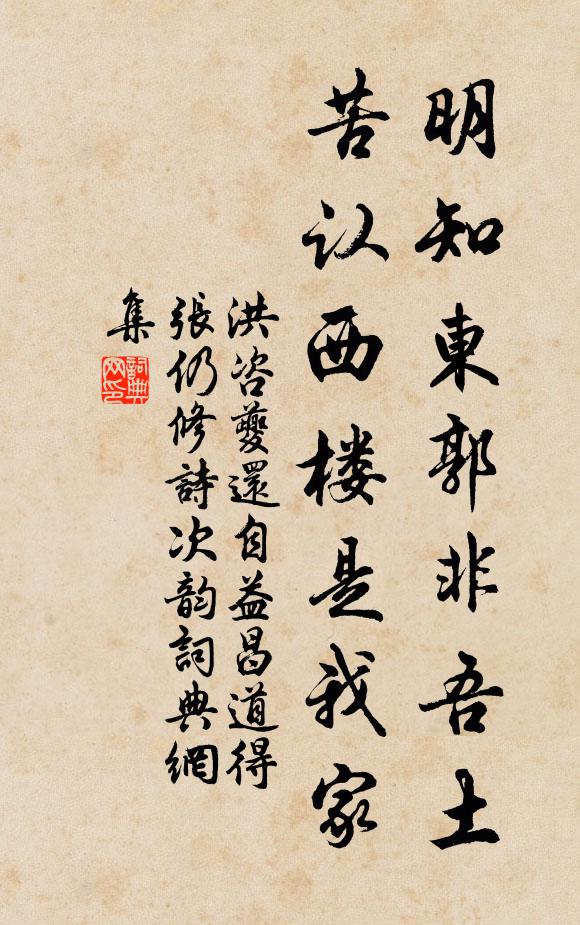 明知東郭非吾土
苦认西楼是我家
洪咨夔還自益昌道得
張仍修詩次韵詞典網
集
詞典
网印